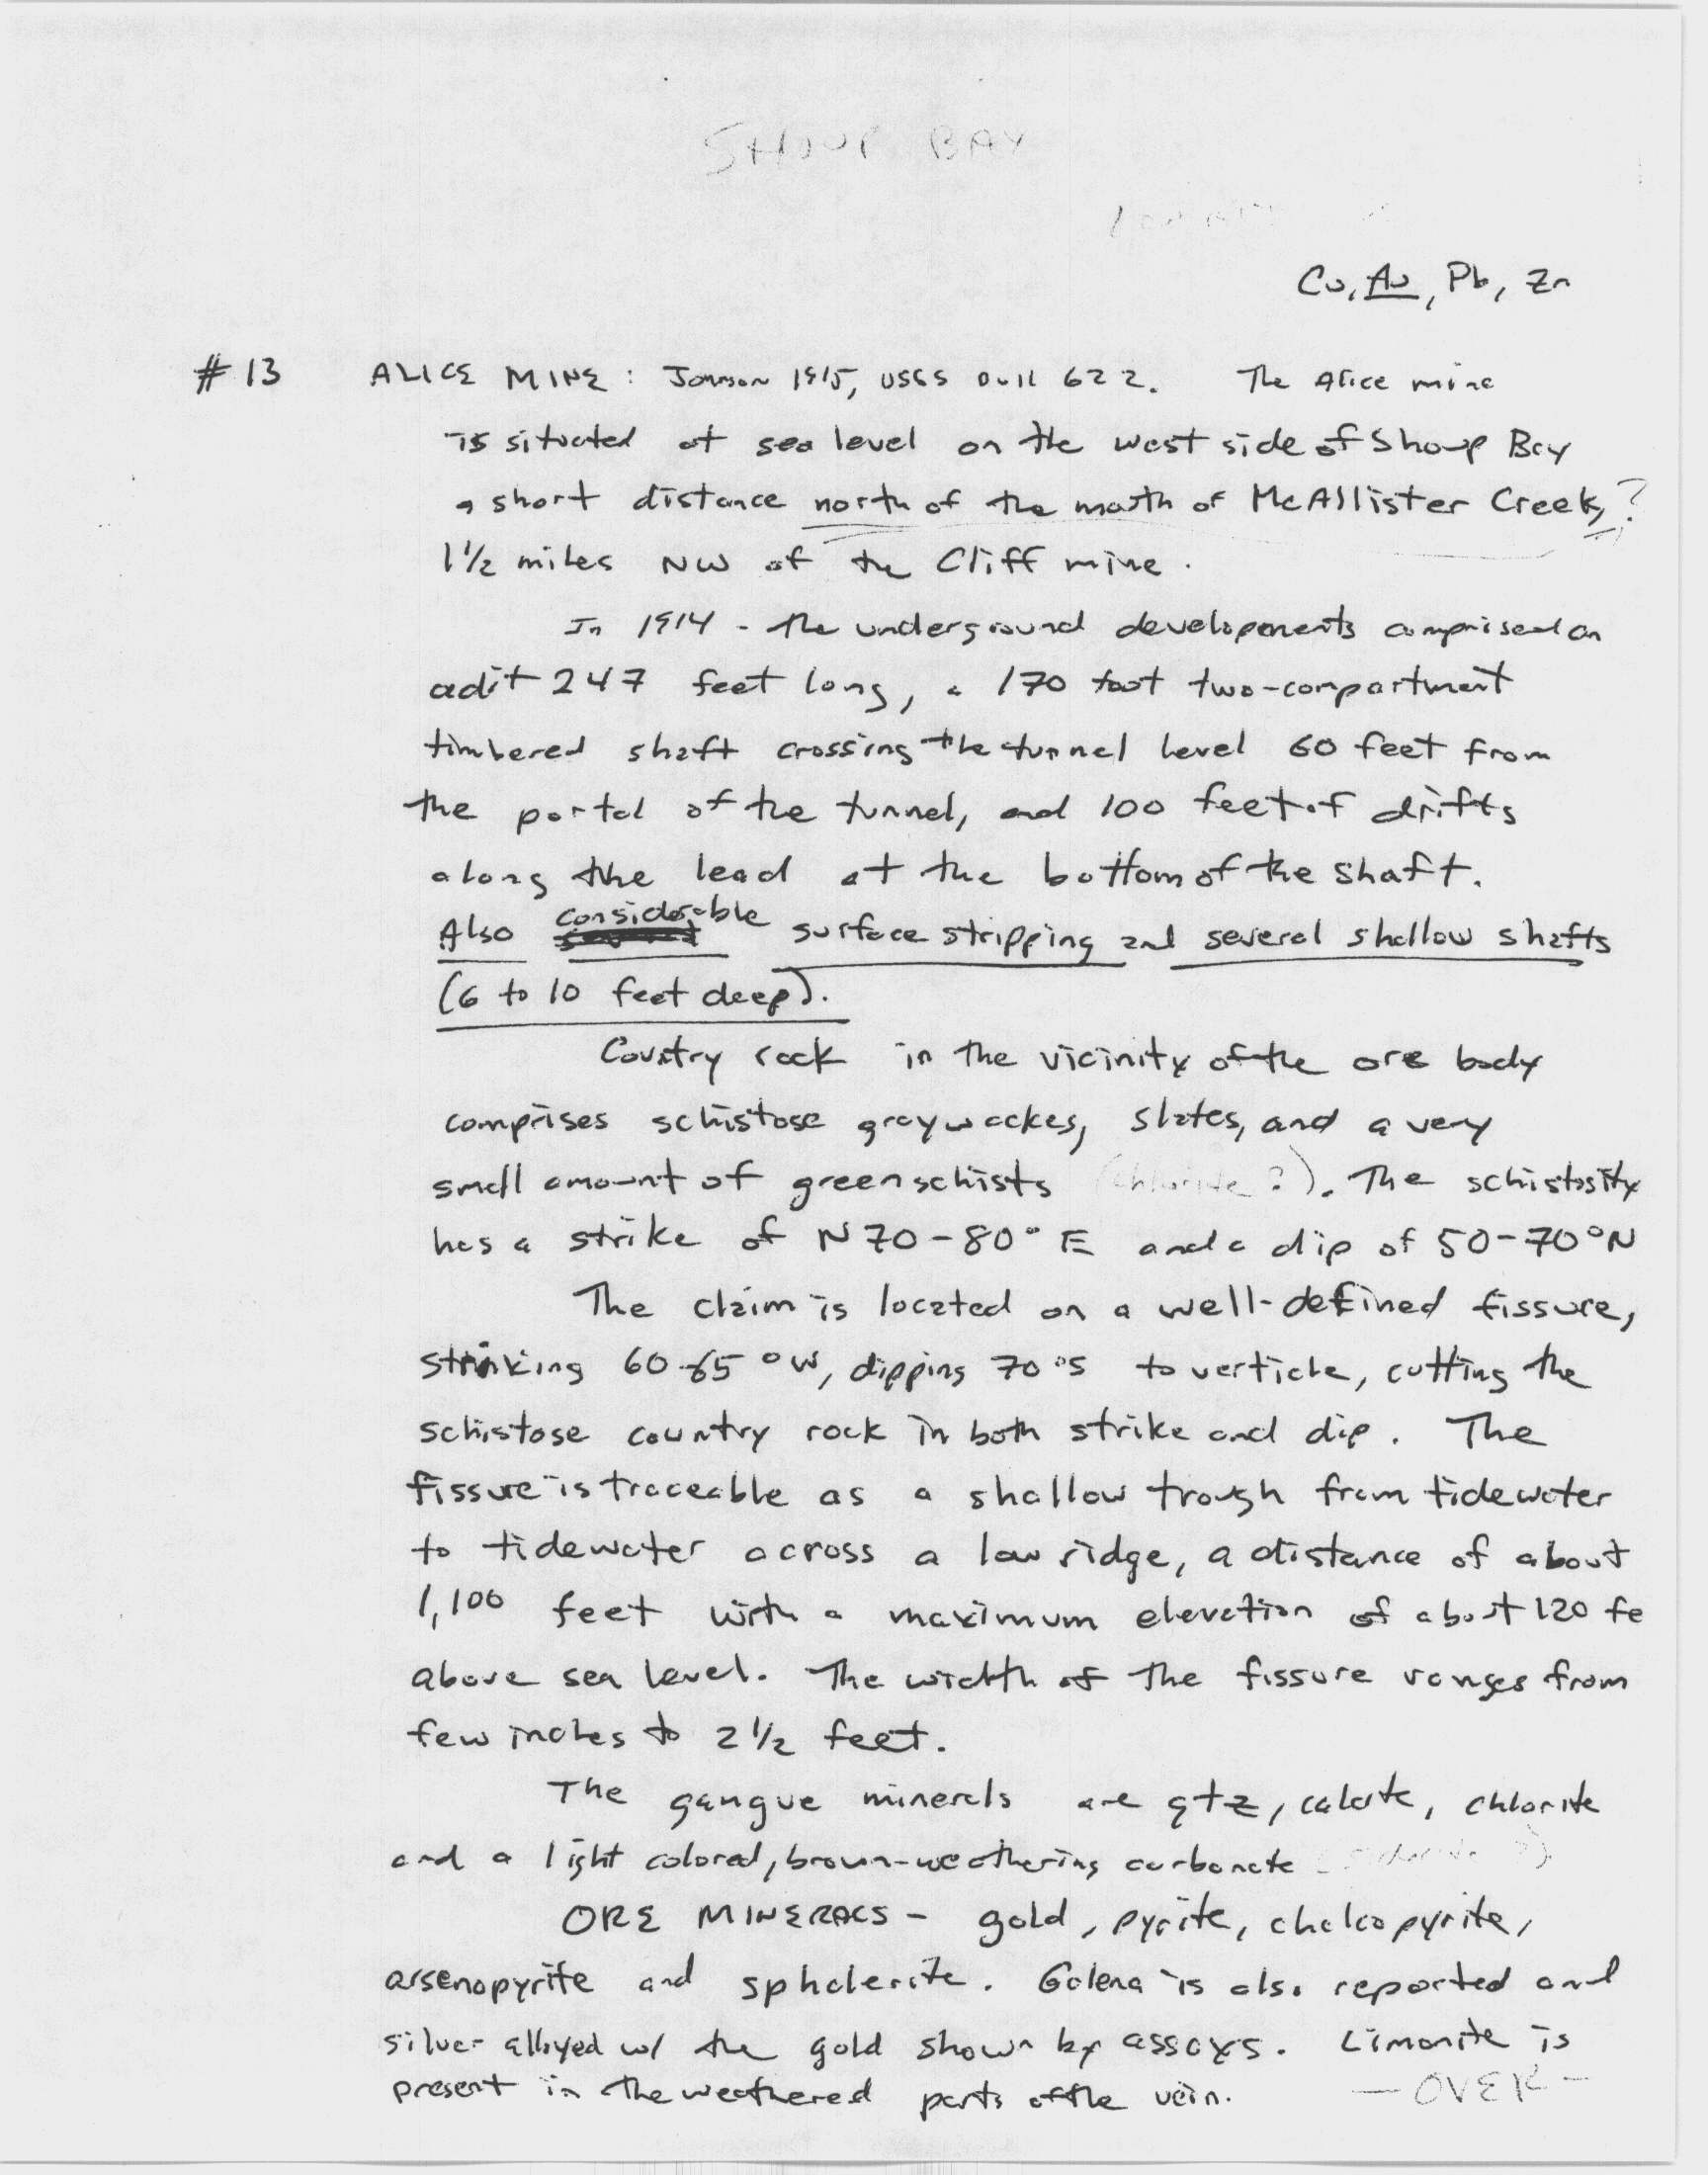 SHOUP BAY
Cu, Au, Pb, Zn
#13 ALICE MINE: Johnson 1915, USGS Bull 622. The Alice mine
is situated at sea level on the west side of Shoup Bay
a short distance north of the mouth of McAllister Creek,?
1½ miles NW of the Cliff mine.
In 1914 - the underground developments comprised an
adit 247 feet long, a 170 foot two-compartment
timbered shaft crossing the tunnel level 60 feet from
the portal of the tunnel, and 100 feet of drifts
along the lead at the bottom of the shaft.
Also considerable surface stripping and several shallow shafts
(6 to 10 feet deep).
Country rock in the vicinity of the ore body
comprises schistose graywackes, slates, and a very
small amount of greenschists (chlorite?). The schistosity
has a strike of N 70-80° E and a dip of 50-70° N
The claim is located on a well-defined fissure,
striking 60-65 °W, dipping 70°S to verticle, cutting the
schistose country rock in both strike and dip. The
fissure is traceable as a shallow trough from tidewater
to tidewater across a low ridge, a distance of about
1,100 feet with a maximum elevation of about 120 fe
above sea level. The width of the fissure ranges from
few inches to 2½ feet.
The gangue minerals are qtz, calcite, chlorite
and a light colored, brown-weathering carbonate
ORE MINERALS - gold, pyrite, chalcopyrite,
arsenopyrite and sphalerite. Galena is also reported and
silver alloyed w/ the gold shown by assays. Limonite is
present in the weathered parts of the vein. - OVER -